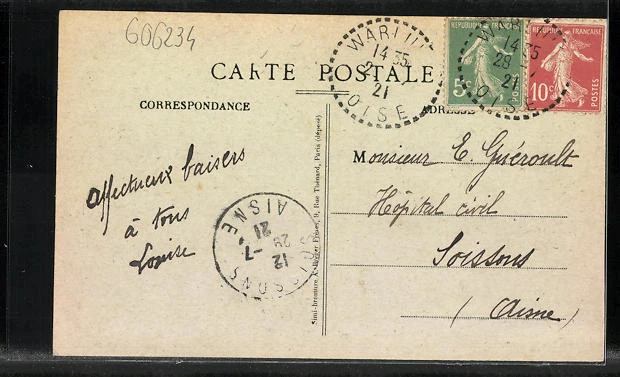 606234
CARTE POSTALE
CORRESPONDANCE
ADRESSE
WARLUIS
14 35
28
21
OISE
REPUBLIQUE FRANÇAISE
5c
14 35
28
21
OISE
REPUBLIQUE FRANÇAISE
10c
POSTES
affectueux baisers
à tous
Louise
SOISSONS
AISNE
12
29 -7
21
Monsieur E. Guéroult
Hôpital civil
Soissons
(Aisne)
Simi-bromure A. Breger Frères, 9, Rue Thénard, Paris (déposé)